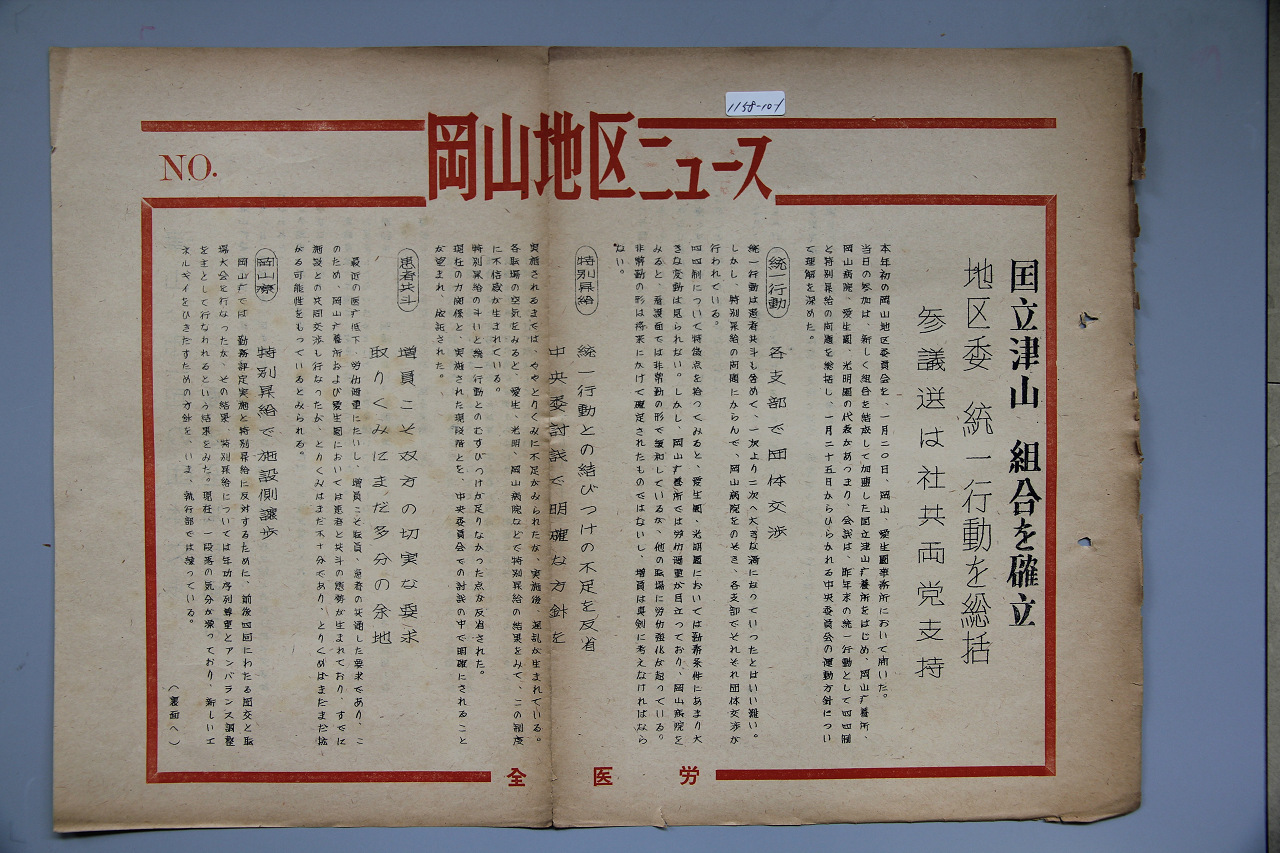 1158-104
岡山地区ニュース
NO.
国立津山 組合を確立
地区委 統一行動を総括
参議選は社共両党支持
本年初の岡山地区委員会を、一月二〇日、岡山、愛生園事務所において開いた。
当日の参加は、新しく組合を結成して加盟した国立津山疗養所をはじめ、岡山疗養所、
岡山病院、愛生園、光明園の代表があつまり、会議は、昨年末の統一行動として四四制
と特別昇給の問題を総括し、一月二十五日からひらかれる中央委員会の運動方針につい
て理解を深めた。
統一行動
各支部で団体交渉
統一行動は患者共斗も含めて、一次より二次へ大きな渦になっていったとはいい難い。
しかし、特別昇給の問題にからんで、岡山病院をのぞき、各支部でそれぞれ団体交渉が
行われている。
四四制について特徴点を拾ってみると、愛生園、光明園においては勤務条件にあまり大
きな変動は見られない。しかし、岡山疗養所では労仂過重が目立っており、岡山病院を
みると、看護面では非常勤の形で緩和しているが、他の職場に労仂強化が起っている。
非常勤の形は将来にかけて確定されたものではないし、増員は真剣に考えなければなら
ない。
特別昇給
統一行動との結びつけの不足を反省
中央委討議で明確な方針を
実施されるまでは、ややとりくみに不足がみられたが、実施後、混乱が生まれている。
各職場の空気をみると、愛生、光明、岡山病院などで特別昇給の結果をみて、この制度
に不信感が生まれている。
特別昇給の斗いと統一行動とのむすびつけが足りなかった点が反省された。
現在の力関係と、実施された現段階とを、中央委員会での討議の中で明確にされること
が望まれ、依託された。
患者共斗
増員こそ双方の切実な要求
取りくみにまだ多分の余地
最近の医疗低下、労仂過重にたいし、増員こそ職員、患者の共通した要求であり、こ
のため、岡山疗養所および愛生園においては患者と共斗の態勢が生まれており、すでに
施設との共同交渉も行なったが、とりくみはまだ不十分であり、とりくめばまだまだ拡
がる可能性をもっているとみられる。
岡山療
特別昇給で施設側譲歩
岡山疗では、勤務評定実施と特別昇給に反対するために、前後四回にわたる団交と職
場大会を行なったが、その結果、特別昇給については年功序列尊重とアンバランス調整
を主として行なわれるという結果をみた。現在、一段落の気分が漂っており、新しいエ
ネルギイをひきだすための方針を、いま、執行部では練っている。
(裏面へ)
全医労